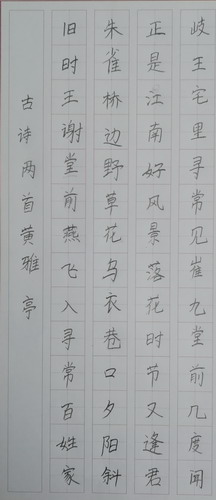 岐王宅里寻常见崔九堂前几度闻
正是江南好风景落花时节又逢君
朱雀桥边野草花乌衣巷口夕阳斜
旧时王谢堂前燕飞入寻常百姓家
古诗两首黄雅亭